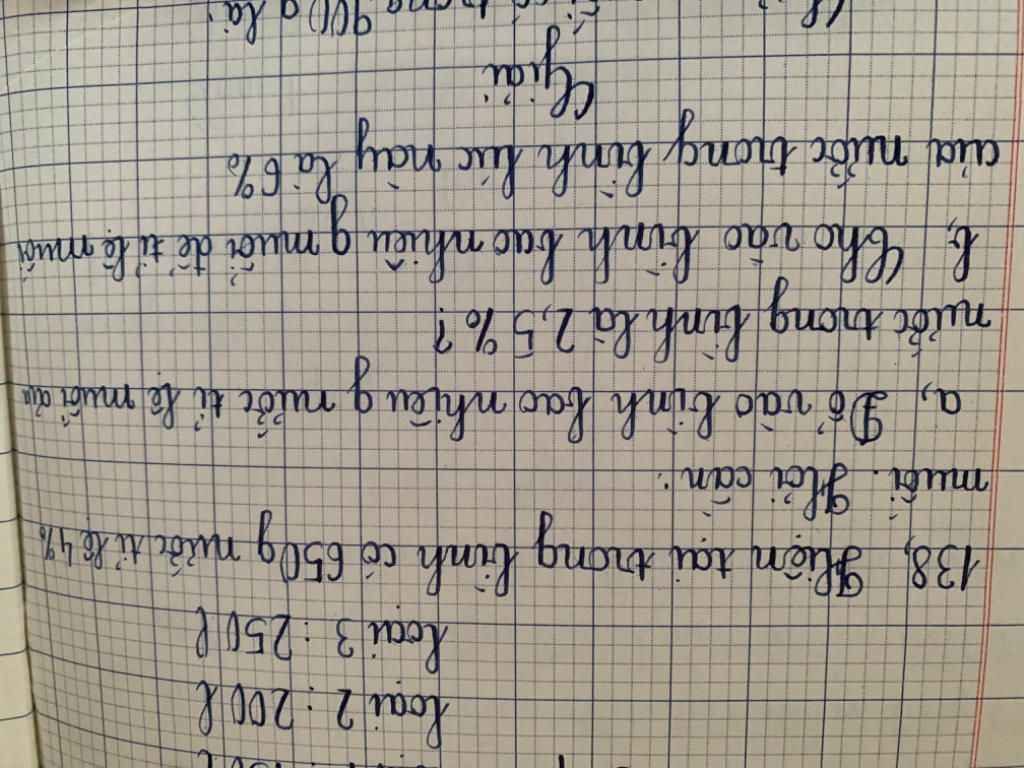 loại 2 : 200 l
loại 3 : 250 l
138, Hiện tại trong bình có 650g nước tỉ lệ 4%
muối. Hỏi cần:
a, Đổ vào bình bao nhiêu g nước tỉ lệ muối của
nước trong bình là 2,5%?
b, Cho vào bình bao nhiêu g muối để tỉ lệ muối
của nước trong bình lúc này là 6%
Giải
có trong 900 g là: